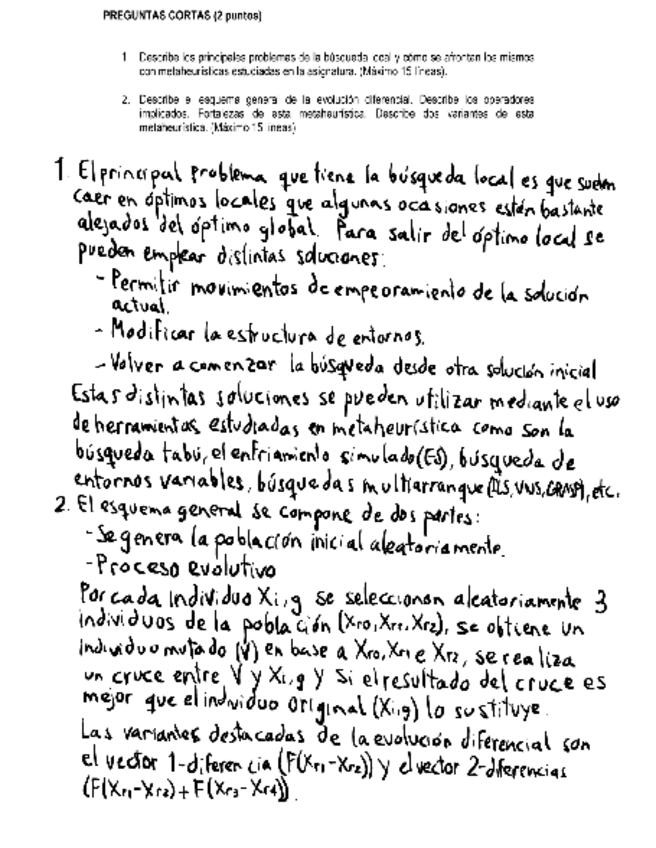 PREGUNTAS CORTAS (2 puntos)
1. Describe los principales problemas de la búsqueda local y cómo se afrontan los mismos
con metaheurísticas estudiadas en la asignatura. (Máximo 15 líneas).
2. Describe el esquema general de la evolución diferencial. Describe los operadores
implicados. Fortalezas de esta metaheurística. Describe dos variantes de esta
metaheurística. (Máximo 15 líneas)
1. El principal problema que tiene la búsqueda local es que suelen
caer en óptimos locales que algunas ocasiones están bastante
alejados del óptimo global. Para salir del óptimo local se
pueden emplear distintas soluciones:
- Permitir movimientos de empeoramiento de la solución
actual.
- Modificar la estructura de entornos.
- Volver a comenzar la búsqueda desde otra solución inicial
Estas distintas soluciones se pueden utilizar mediante el uso
de herramientas estudiadas en metaheurística como son la
búsqueda tabú, el enfriamiento simulado (ES), búsqueda de
entornos variables, búsquedas multiarranque (ILS, VNS, GRASP), etc.
2. El esquema general se compone de dos partes:
- Se genera la población inicial aleatoriamente.
- Proceso evolutivo
Por cada individuo Xi,g se seleccionan aleatoriamente 3
individuos de la población (Xr0, Xr1, Xr2), se obtiene un
individuo mutado (V) en base a Xr0, Xr1 e Xr2, se realiza
un cruce entre V y Xi,g y si el resultado del cruce es
mejor que el individuo original (Xi,g) lo sustituye.
Las variantes destacadas de la evolución diferencial son
el vector 1-diferencia (F(Xr1-Xr2)) y el vector 2-diferencias
(F(Xr1-Xr2)+F(Xr3-Xr4)).